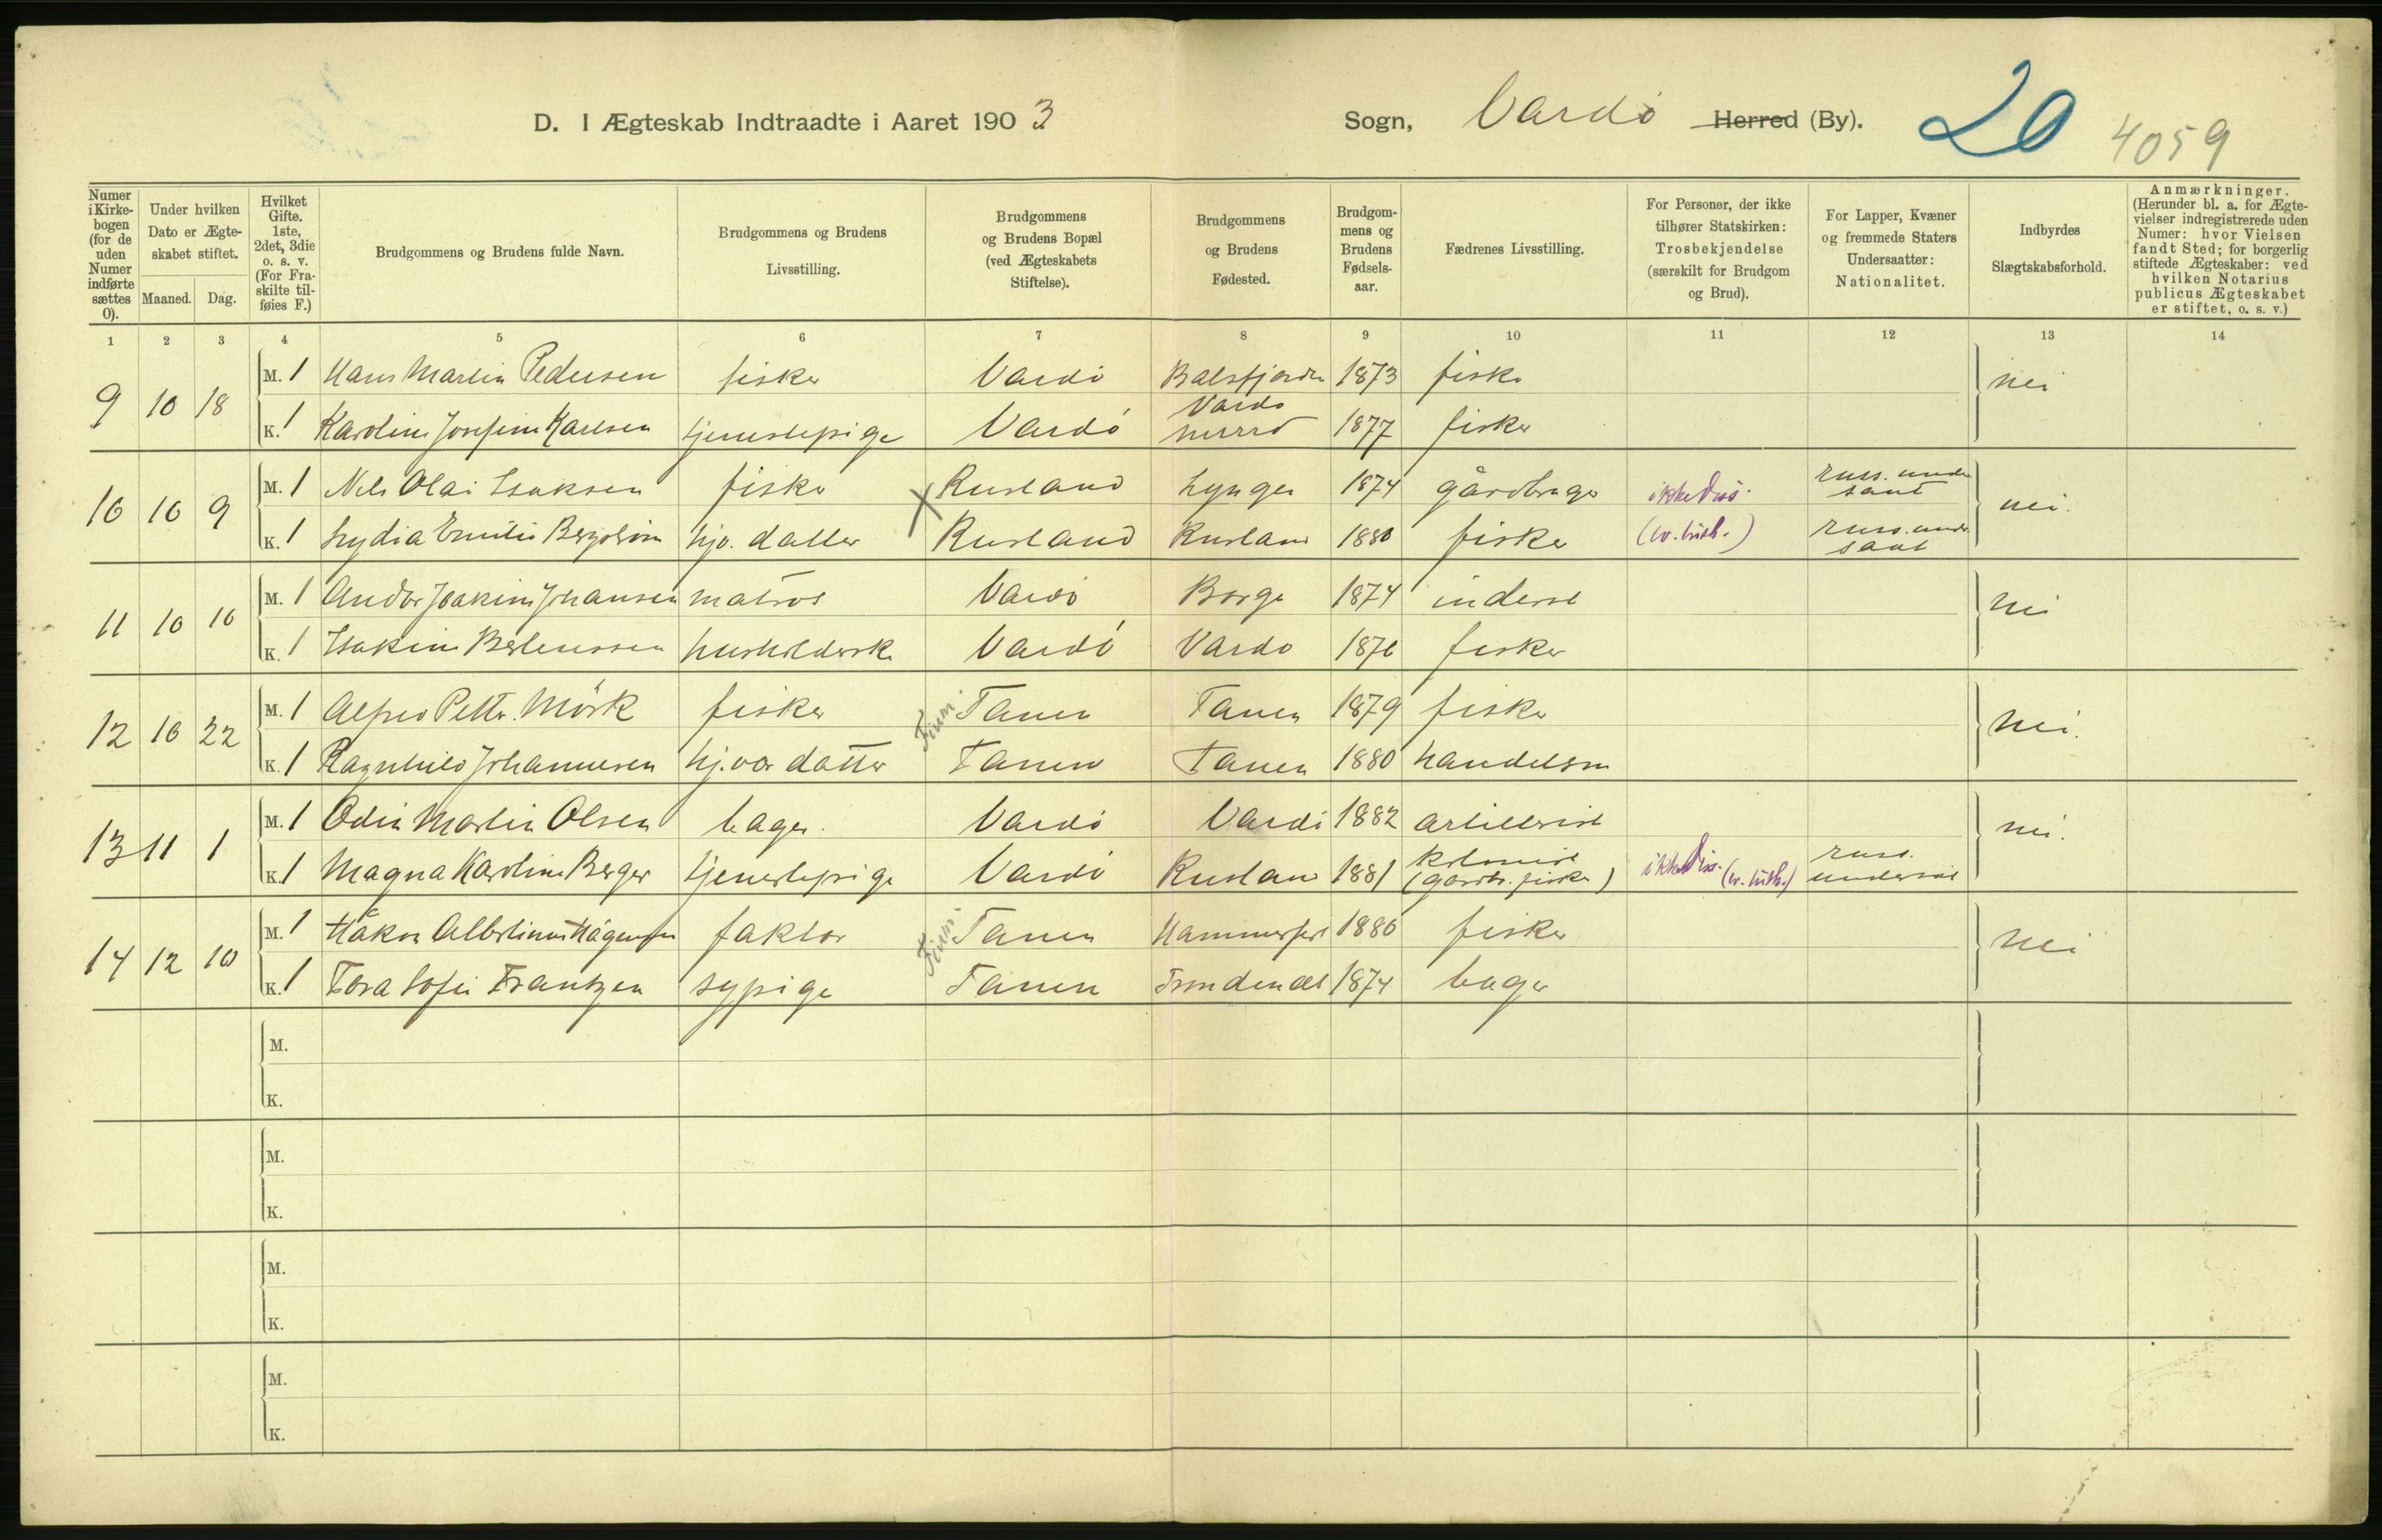 D. I Ægteskab Indtraadte i Aaret 1903
Sogn, Vardö Herred (By). 20 4059
Numer i Kirkebogen (for de uden Numer indførte sættes 0).
Under hvilken Dato er Ægteskabet stiftet.
Maaned. Dag.
Hvilket Gifte. 1ste, 2det, 3die o. s. v. (For Fraskilte tilføies F.)
Brudgommens og Brudens fulde Navn.
Brudgommens og Brudens Livsstilling.
Brudgommens og Brudens Bopæl (ved Ægteskabets Stiftelse).
Brudgommens og Brudens Fødested.
Brudgommens og Brudens Fødselsaar.
Fædrenes Livsstilling.
For Personer, der ikke tilhører Statskirken: Trosbekjendelse (særskilt for Brudgom og Brud).
For Lapper, Kvæner og fremmede Staters Undersaatter: Nationalitet.
Indbyrdes Slægtskabsforhold.
Anmærkninger. (Herunder bl. a. for Ægtevielser indregistrerede uden Numer: hvor Vielsen fandt Sted; for borgerlig stiftede Ægteskaber: ved hvilken Notarius publicus Ægteskabet er stiftet, o. s. v.)
1 2 3 4 5 6 7 8 9 10 11 12 13 14
9 10 18 M. 1 Hans Martin Pedersen fisker Vardö Balsfjorden 1873 fisker nei
K. 1 Karoline Josefine Karlsen tjenestepige Vardö Vardö herred 1877 fisker
10 10 9 M. 1 Nils Olai Isaksen fisker Rusland Lyngen 1874 gårdbruger ikke diss. russ. undersaat nei.
K. 1 Lydia Emilie hjv. datter Rusland Rusland 1880 fisker (ev. luth.) russ. undersaat
11 10 10 M. 1 Andor Joakim Johansen matros Vardö Borge 1874 inderst nei
K. 1 Isakine Berteussen husholderske Vardö Vardö fisker
12 10 22 M. 1 Alfred Petter Mörk fisker Tanen Tanen 1879 fisker nei.
K. 1 Ragnhild Johannesen hj.vær. datter Tanen Tanen 1880 handelsm
13 11 1 M. 1 Odin Martin Olsen bager. Vardö Vardö 1882 artillerist nei.
K. 1 Magna Karoline Berger tjenestepige Vardö Rusland 1881 kolonist (gårdbr. fisker) ikke diss. (ev. luth.) russ. undersaat
14 12 10 M. 1 Håkon Albertinus Hågensen faktor Tanen Hammerfest 1880 fisker nei
K. 1 Tora Sofie Frantzen sypige Tanen Trondenæs 1874 bager
M.
K.
M.
K.
M.
K.
M.
K.